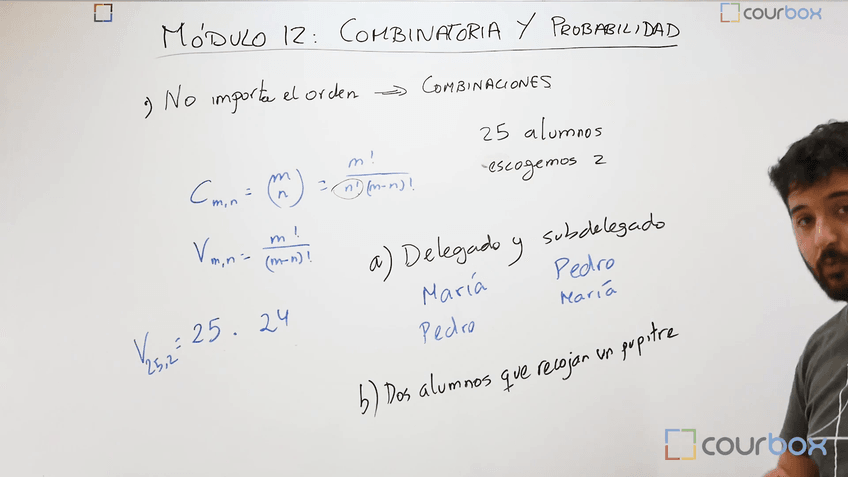 courbox
MÓDULO 12: COMBINATORIA Y PROBABILIDAD
) No importa el orden → COMBINACIONES
25 alumnos
escogemos 2
C m,n = (m n) = m! / n! (m-n)!
V m,n = m! / (m-n)!
a) Delegado y subdelegado
María Pedro
Pedro María
V 25,2 = 25 . 24
b) Dos alumnos que recojan un pupitre
courbox